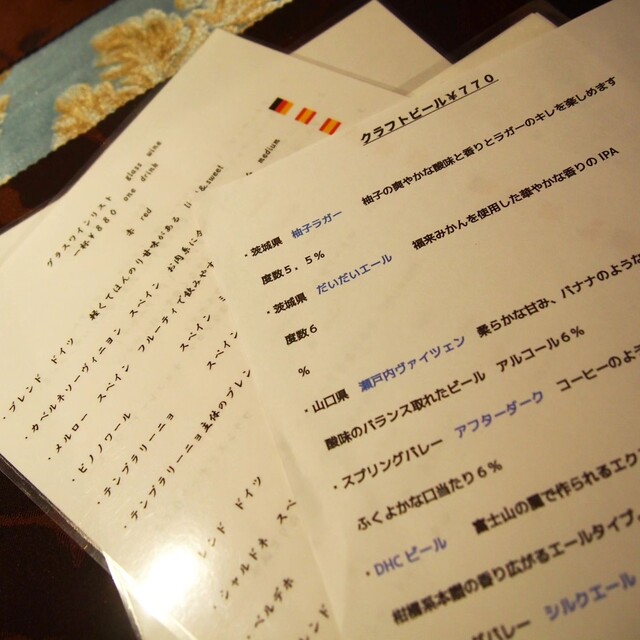 グラスワインリスト glass wine
一杯￥880 one drink
赤 red
・ブレンド ドイツ 軽くてほんのり甘味がある
・カベルネソーヴィニヨン スペイン お肉系に
・メルロー スペイン フルーティで飲みやす
・ピノノワール スペイン
・テンプラリーニョ スペイン
・テンプラリーニョ主体のブレン
レンド ドイツ
・シャルドネ スペ
・ベルデホ
medium
クラフトビール￥770
・茨城県 柚子ラガー 柚子の爽やかな酸味と香りとラガーのキレを楽しめます
度数5．5％
・茨城県 だいだいエール 福来みかんを使用した華やかな香りの IPA
度数6
％
・山口県 瀬戸内ヴァイツェン 柔らかな甘み、バナナのような
酸味のバランス取れたビール アルコール6％
・スプリングバレー アフターダーク コーヒーのよう
ふくよかな口当たり6％
・DHC ビール 富士山の麓で作られるエクス
柑橘系本髄の香り広がるエールタイプ。
グバレー シルクエール